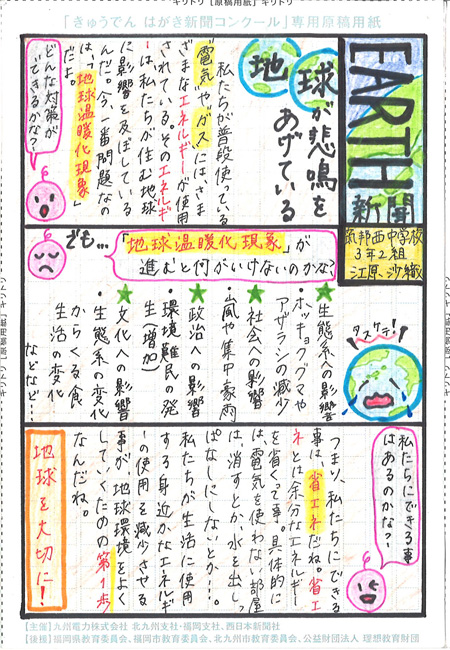 キリトリ【原稿用紙】キリトリ
「きゅうでん はがき新聞コンクール」専用原稿用紙
EARTH
新聞
筑邦西中学校
3年2組
江原 沙織
地球が悲鳴を
あげている
私たちが普段使っている
"電気やガス"にはさま
ざまなエネルギーが使用
されている。そのエネルギ
ーは私たちが住む地球
に影響を及ぼしている
んだ。今一番問題なの
は、「地球温暖化現象」
だよ。
どんな対策が
できるかな?
でも…
「地球温暖化現象」が
進むと何がいけないのかな?
タスケテ!
★生態系への影響
・ホッキョクグマや
アザラシの減少
★社会への影響
・嵐や集中豪雨
★政治への影響
・環境難民の発
生(増加)
★文化への影響
・生態系の変化
からくる食
生活の変化
などなど…
私たちにできる事
はあるのかな?
つまり、私たちにできる
事は、省エネだね。省エ
ネとは余分なエネルギー
を省くって事。具体的に
は、電気を使わない部屋
は、消すとか、水を出しっ
ぱなしにしないとか…。
私たちが生活に使用
する身近かなエネルギ
ーの使用を減少させる
事が、地球環境をよく
していくための第1歩
なんだね。
地球を大切に!
【主催】九州電力株式会社 北九州支社・福岡支社、西日本新聞社
【後援】福岡県教育委員会、福岡市教育委員会、北九州市教育委員会、公益財団法人 理想教育財団